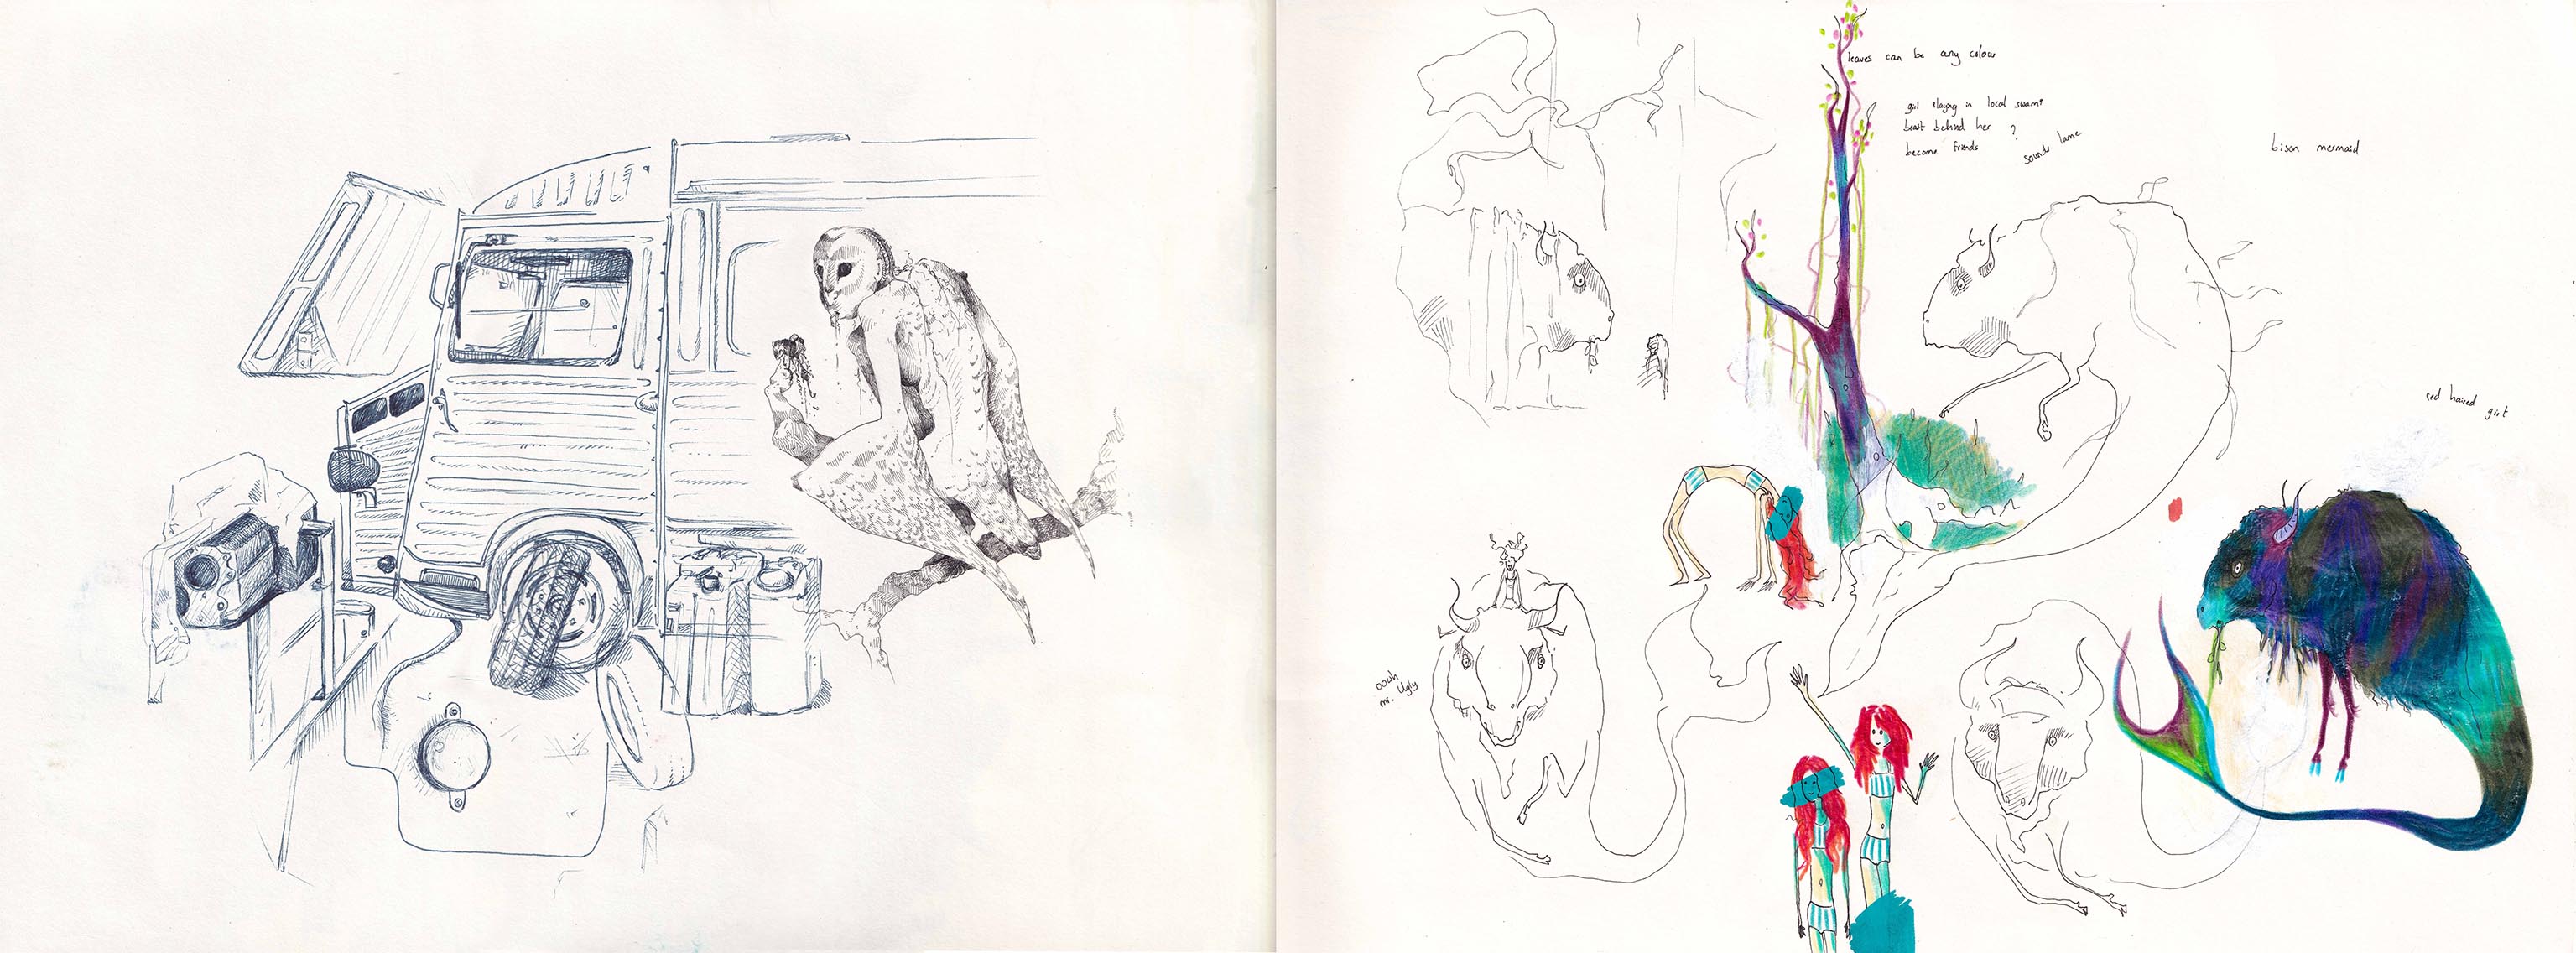 leaves can be any colour
girl playing in local swamp
beast behind her ?
become friends
sounds lame
bison mermaid
red haired girl
oooh
mr. Ugly